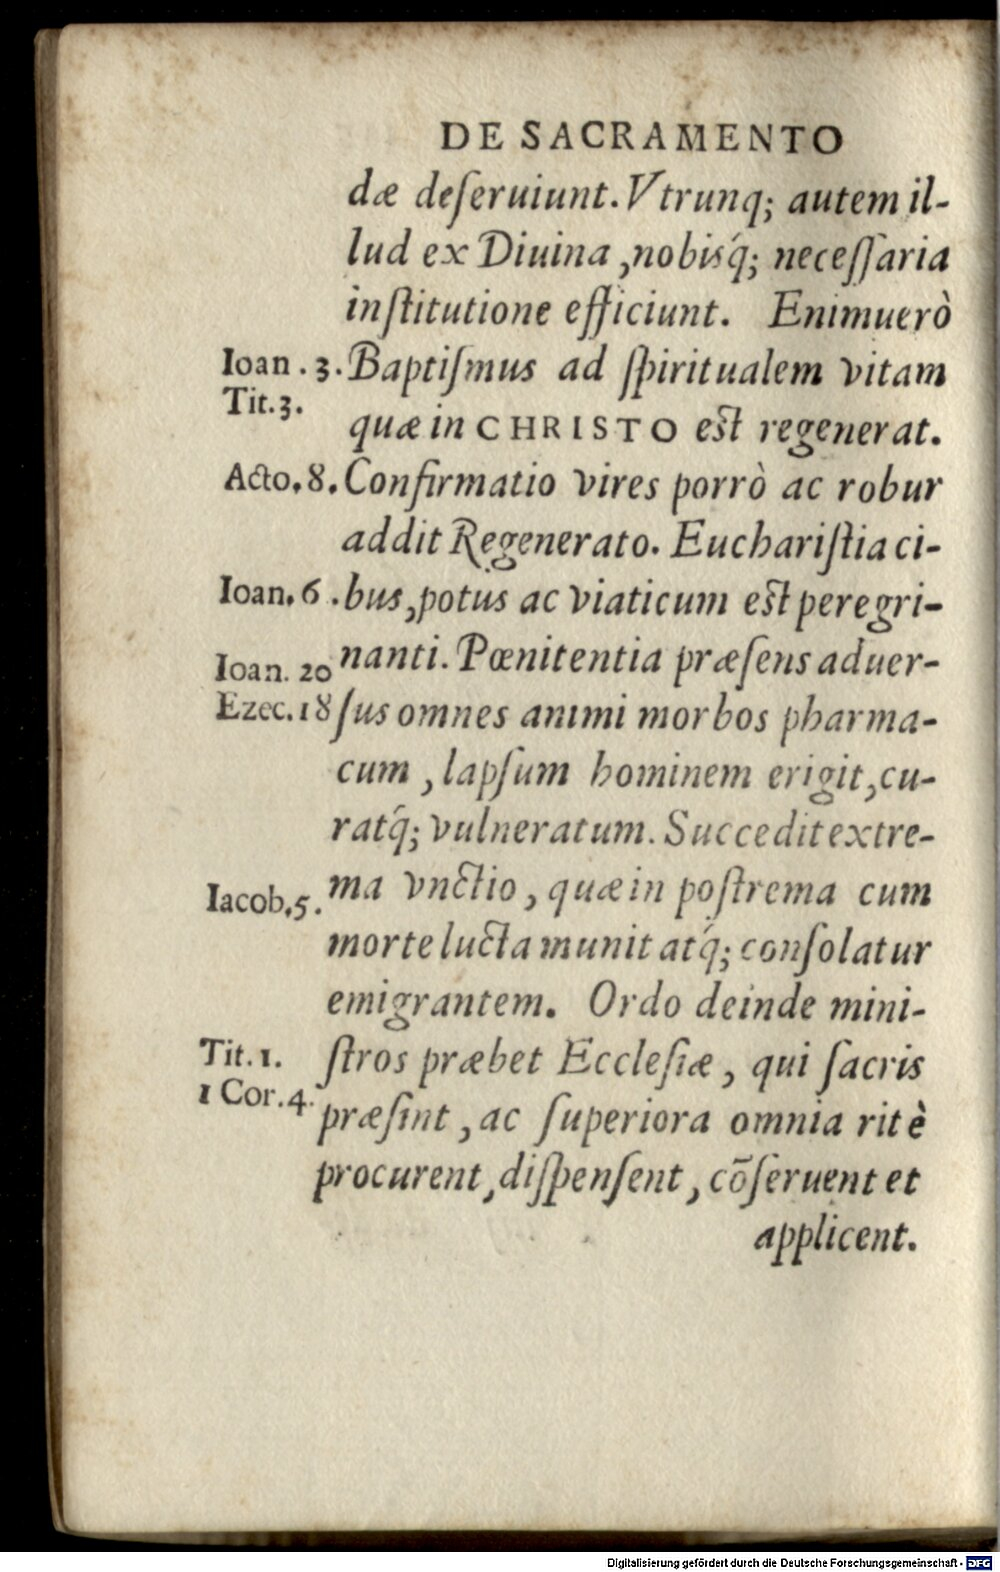 DE SACRAMENTO
dæ deſeruiunt. Vtrunq; autem il-
lud ex Diuina, nobisq́; neceſſaria
inſtitutione efficiunt. Enimuerò
Ioan. 3. Baptiſmus ad ſpiritualem vitam
Tit. 3.
quæ in CHRISTO est regenerat.
Acto. 8. Confirmatio vires porrò ac robur
addit Regenerato. Euchariſtia ci-
Ioan. 6. bus, potus ac viaticum est peregri-
nanti. Pœnitentia præſens aduer-
Ioan. 20
Ezec. 18 ſus omnes animi morbos pharma-
cum, lapſum hominem erigit, cu-
ratq́; vulneratum. Succedit extre-
Iacob. 5. ma vnctio, quæ in poſtrema cum
morte lucta munit atq́; conſolatur
emigrantem. Ordo deinde mini-
Tit. 1. ſtros præbet Eccleſiæ, qui ſacris
1 Cor. 4. præſint, ac ſuperiora omnia ritè
procurent, diſpenſent, cōſeruent et
applicent.
Digitalisierung gefördert durch die Deutsche Forschungsgemeinschaft - DFG